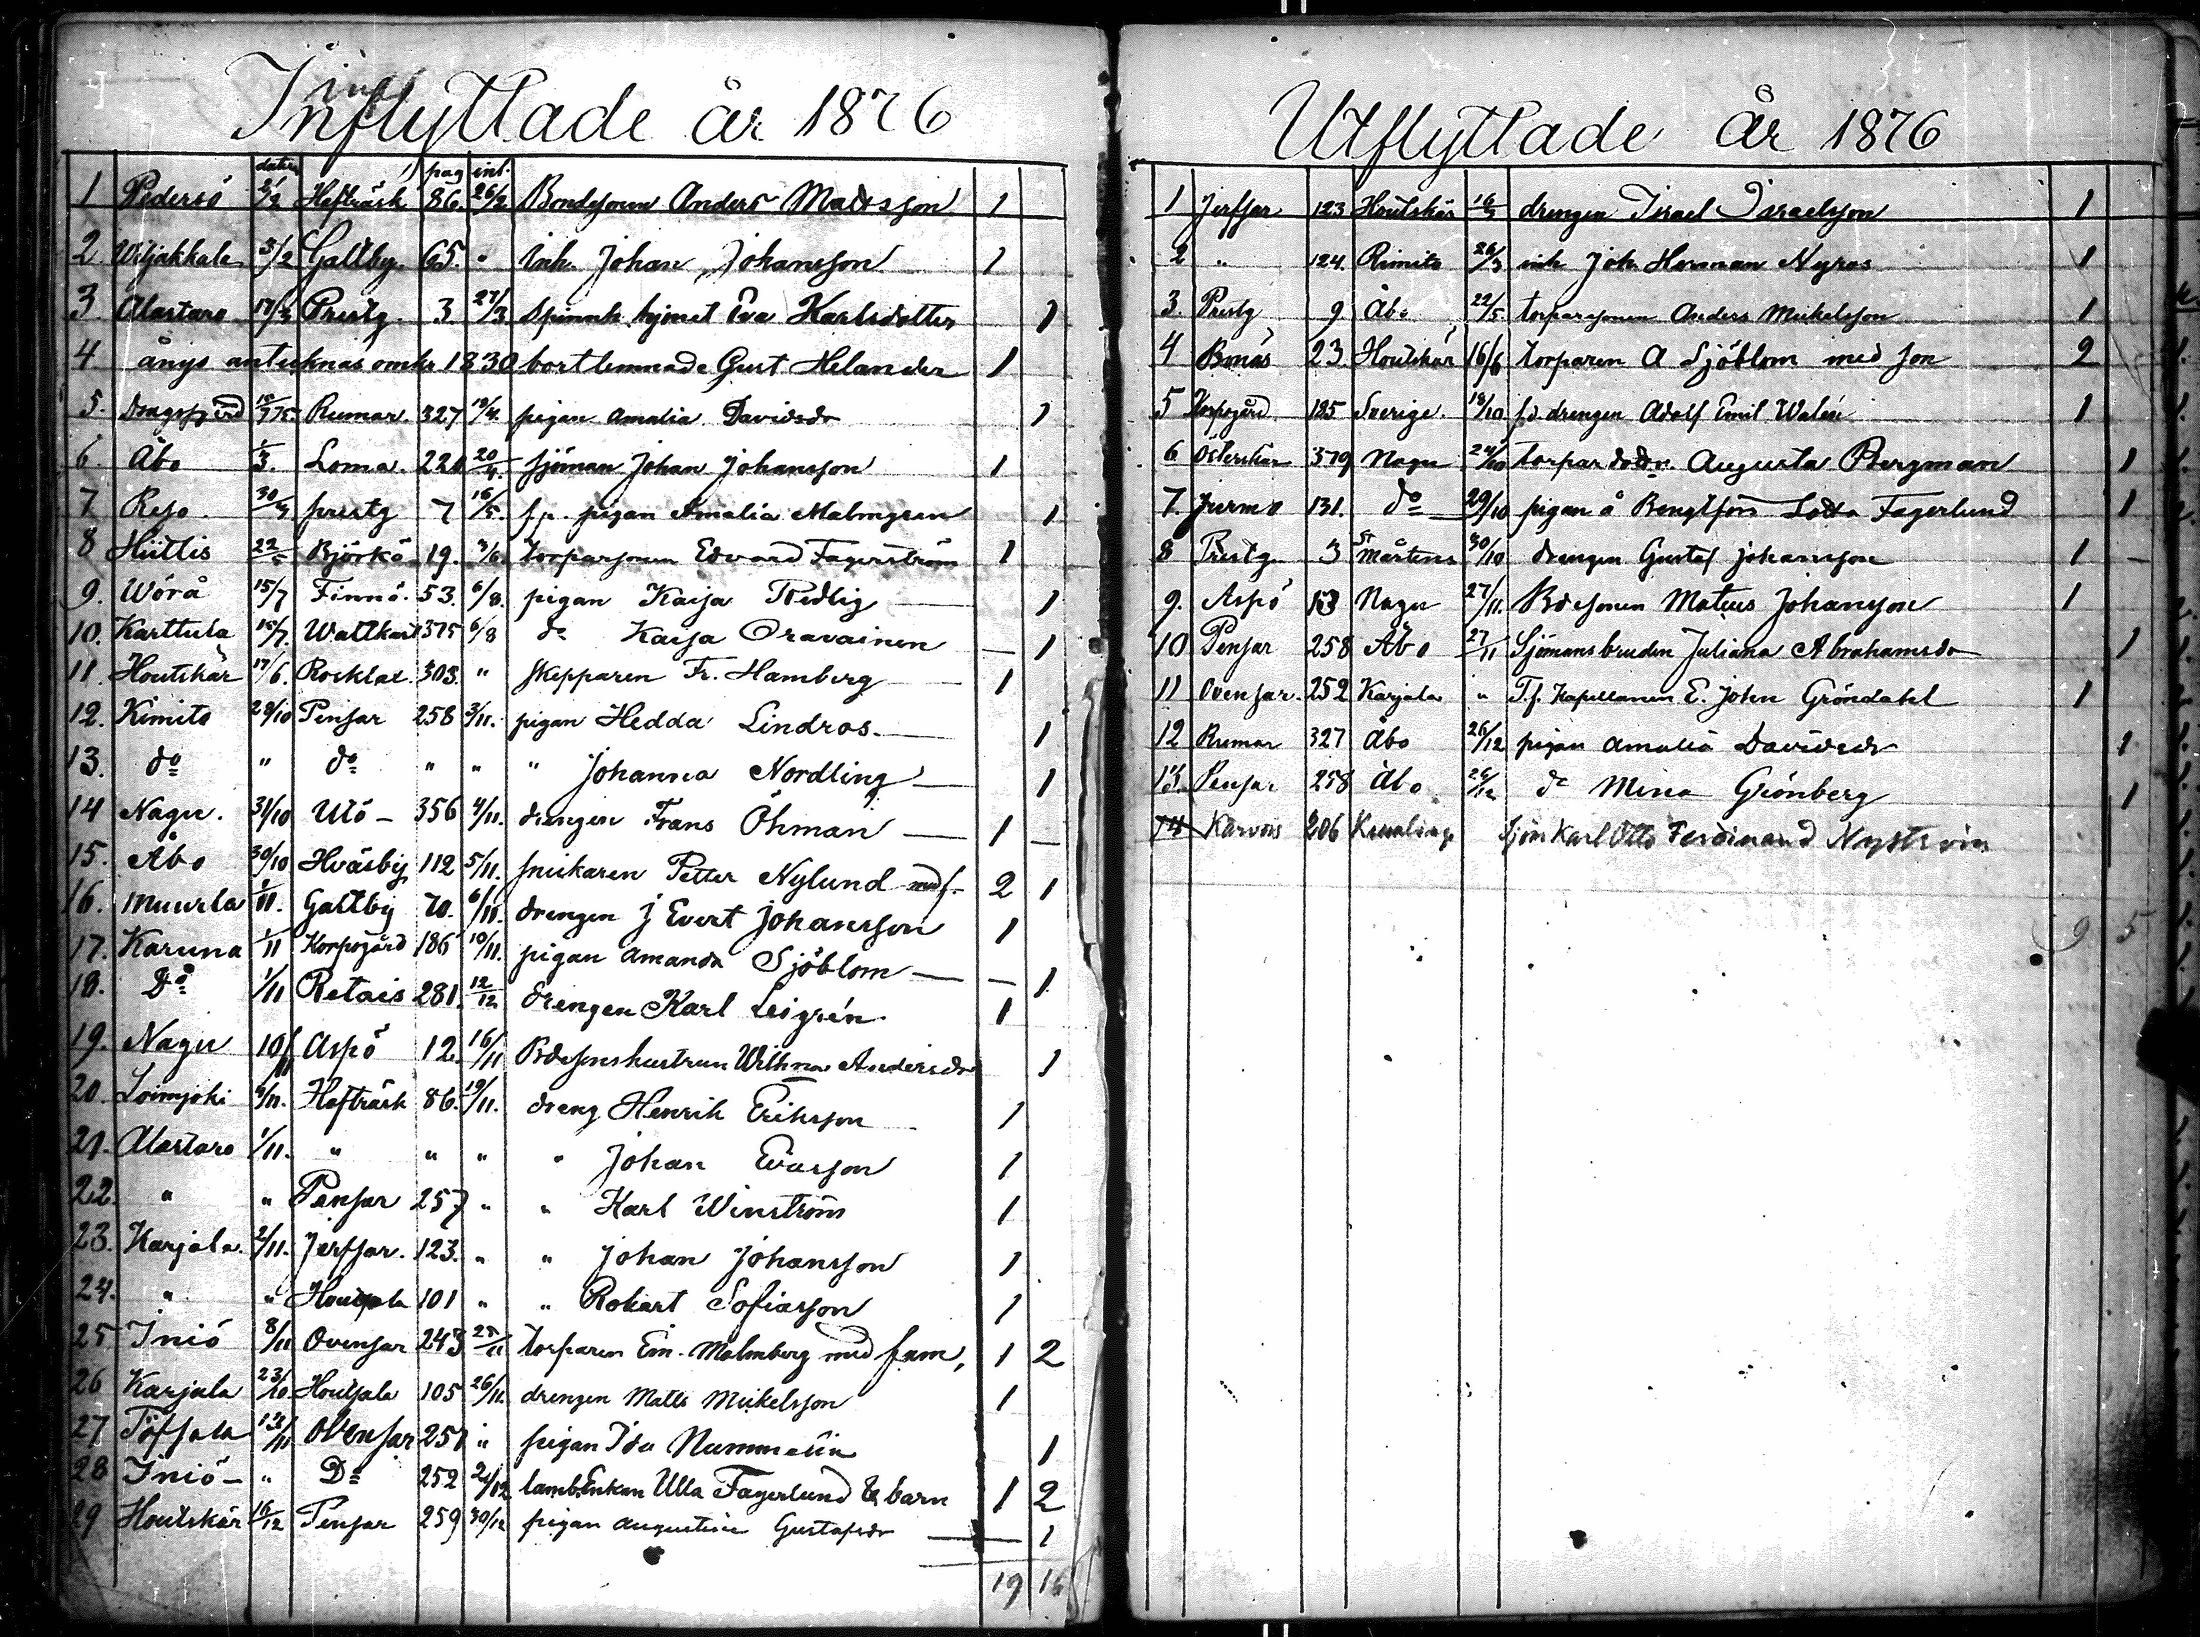 Inflyttade år 1876
pag inl.
1 Pedersö 2/2 Hefträsk 86. 26/2 Bondesonen Anders Mattsson 1
2 Viljakkala 3/2 Galtby 65. " Inh. Johan Johansson 1
3 Alastaro 17/3 Prestg. 3 27/3 Spinnh. hjonet Eva Karlsdotter 1
4 ånyo antecknas omkr 1830 bortlemnade Gust Helander 1
5. Dragsfjerd Rumar. 327 pigan Amalia Davidsdr 1
6. Åbo /3. Loma. 221 20/4. sjöman Johan Johansson 1
7 Reso. 30/4 prestg 7 16/5. pigan Amalia Malmgren 1
8 Hiittis Björkö 19. 3/6 torparsonen Edvard Fagerström 1
9. Wörå 15/7 Finnö. 53. 6/8. pigan Kaisa Redlig 1
10. Karttula 15/7. Wattkast 375 6/8 do Kaisa Oravainen 1
11. Houtskär 17/6. Rocklax. 303. " skepparen Fr. Hamberg 1
12. Kimito 29/10 Pensar 258 3/11. pigan Hedda Lindros. 1
13. do " do " " " Johanna Nordling 1
14 Nagu. 31/10 Utö 356 4/11. drengen Frans Öhman 1
15. Åbo 30/10 Hväsby 112 5/11. snickaren Petter Nylund med f. 2 1
16. Muurla /11. Galtby 70. 6/11. drengen J Evert Johansson 1
17. Karuna 1/11 Korpogård 186 10/11. pigan Amanda Sjöblom 1
18. Do 1/11 Retais 281. 12/12 drengen Karl Leigrén. 1
19. Nagu 10/11 Aspö 12. 16/11 Bdesonshustrun Wilhma Andersdr 1
20. Loimijoki 9/11. Hefträsk 86. 19/11. dreng Henrik Eriksson 1
21. Alastaro 1/11. " " " " Johan Evasson 1
22. " " Pensar 257 " " Karl Winström 1
23. Karjala. 2/11. Jerfsar. 123. " " Johan Johansson 1
24. " " Houtsala 101 " " Robert Sofiasson 1
25 Iniö 8/11 Ovensar 243 25/11 torparen Em. Malmberg med fam, 1 2
26 Karjala 23/10 Houtsala 105 26/11. drengen Matts Mickelsson 1
27 Töfsala 13/11 Ovensar 251 " pigan Ida Nummelin 1
28 Iniö " Do 252 2/12 Enkan Ulla Fagerlund & barn 1 2
29 Houtskär 16/12 Pensar 259 30/12 pigan Augustina Gustafsdr 1
19 16
Utflyttade år 1876
1 Jerfsar 123 Houtskär 16/3 drengen Israel Israelsson 1
2 " 124. Rimito 26/3 inh Joh. Herman Nyroos 1
3. Prestg 9 Åbo 22/5. torparsonen Anders Mickelsson 1
4 Bonäs 23. Houtskär 16/6 torparen A Sjöblom med son 2
5 Korpogård 185 Sverige. 18/10 f.d. drengen Adolf Emil Walén 1
6 Österskär 379 Nagu 24/10 torpardodr. Augusta Bergman 1
7. Jurmo 131. do 29/10 pigan å Bengtsfors Lotta Fagerlund 1
8 Prestg 3 St Mårtens 30/10 drengen Gustaf Johansson 1
9. Aspö 13 Nagu 27/11. Bdesonen Mateus Johansson 1
10 Pensar 258 Åbo 27/11 Sjömansbruden Juliana Abrahamsdr 1
11 Ovensar. 252 Karjala " T.f. Kapellanen E. John Gröndahl 1
12 Rumar 327 Åbo 26/12 pigan Amalia Davidsdr 1
13. Pensar 258 Åbo 26/12 do Mina Grönberg 1
14 Karvois 206 Kumlinge Sjöm Karl Otto Ferdinand Nyström
9 5